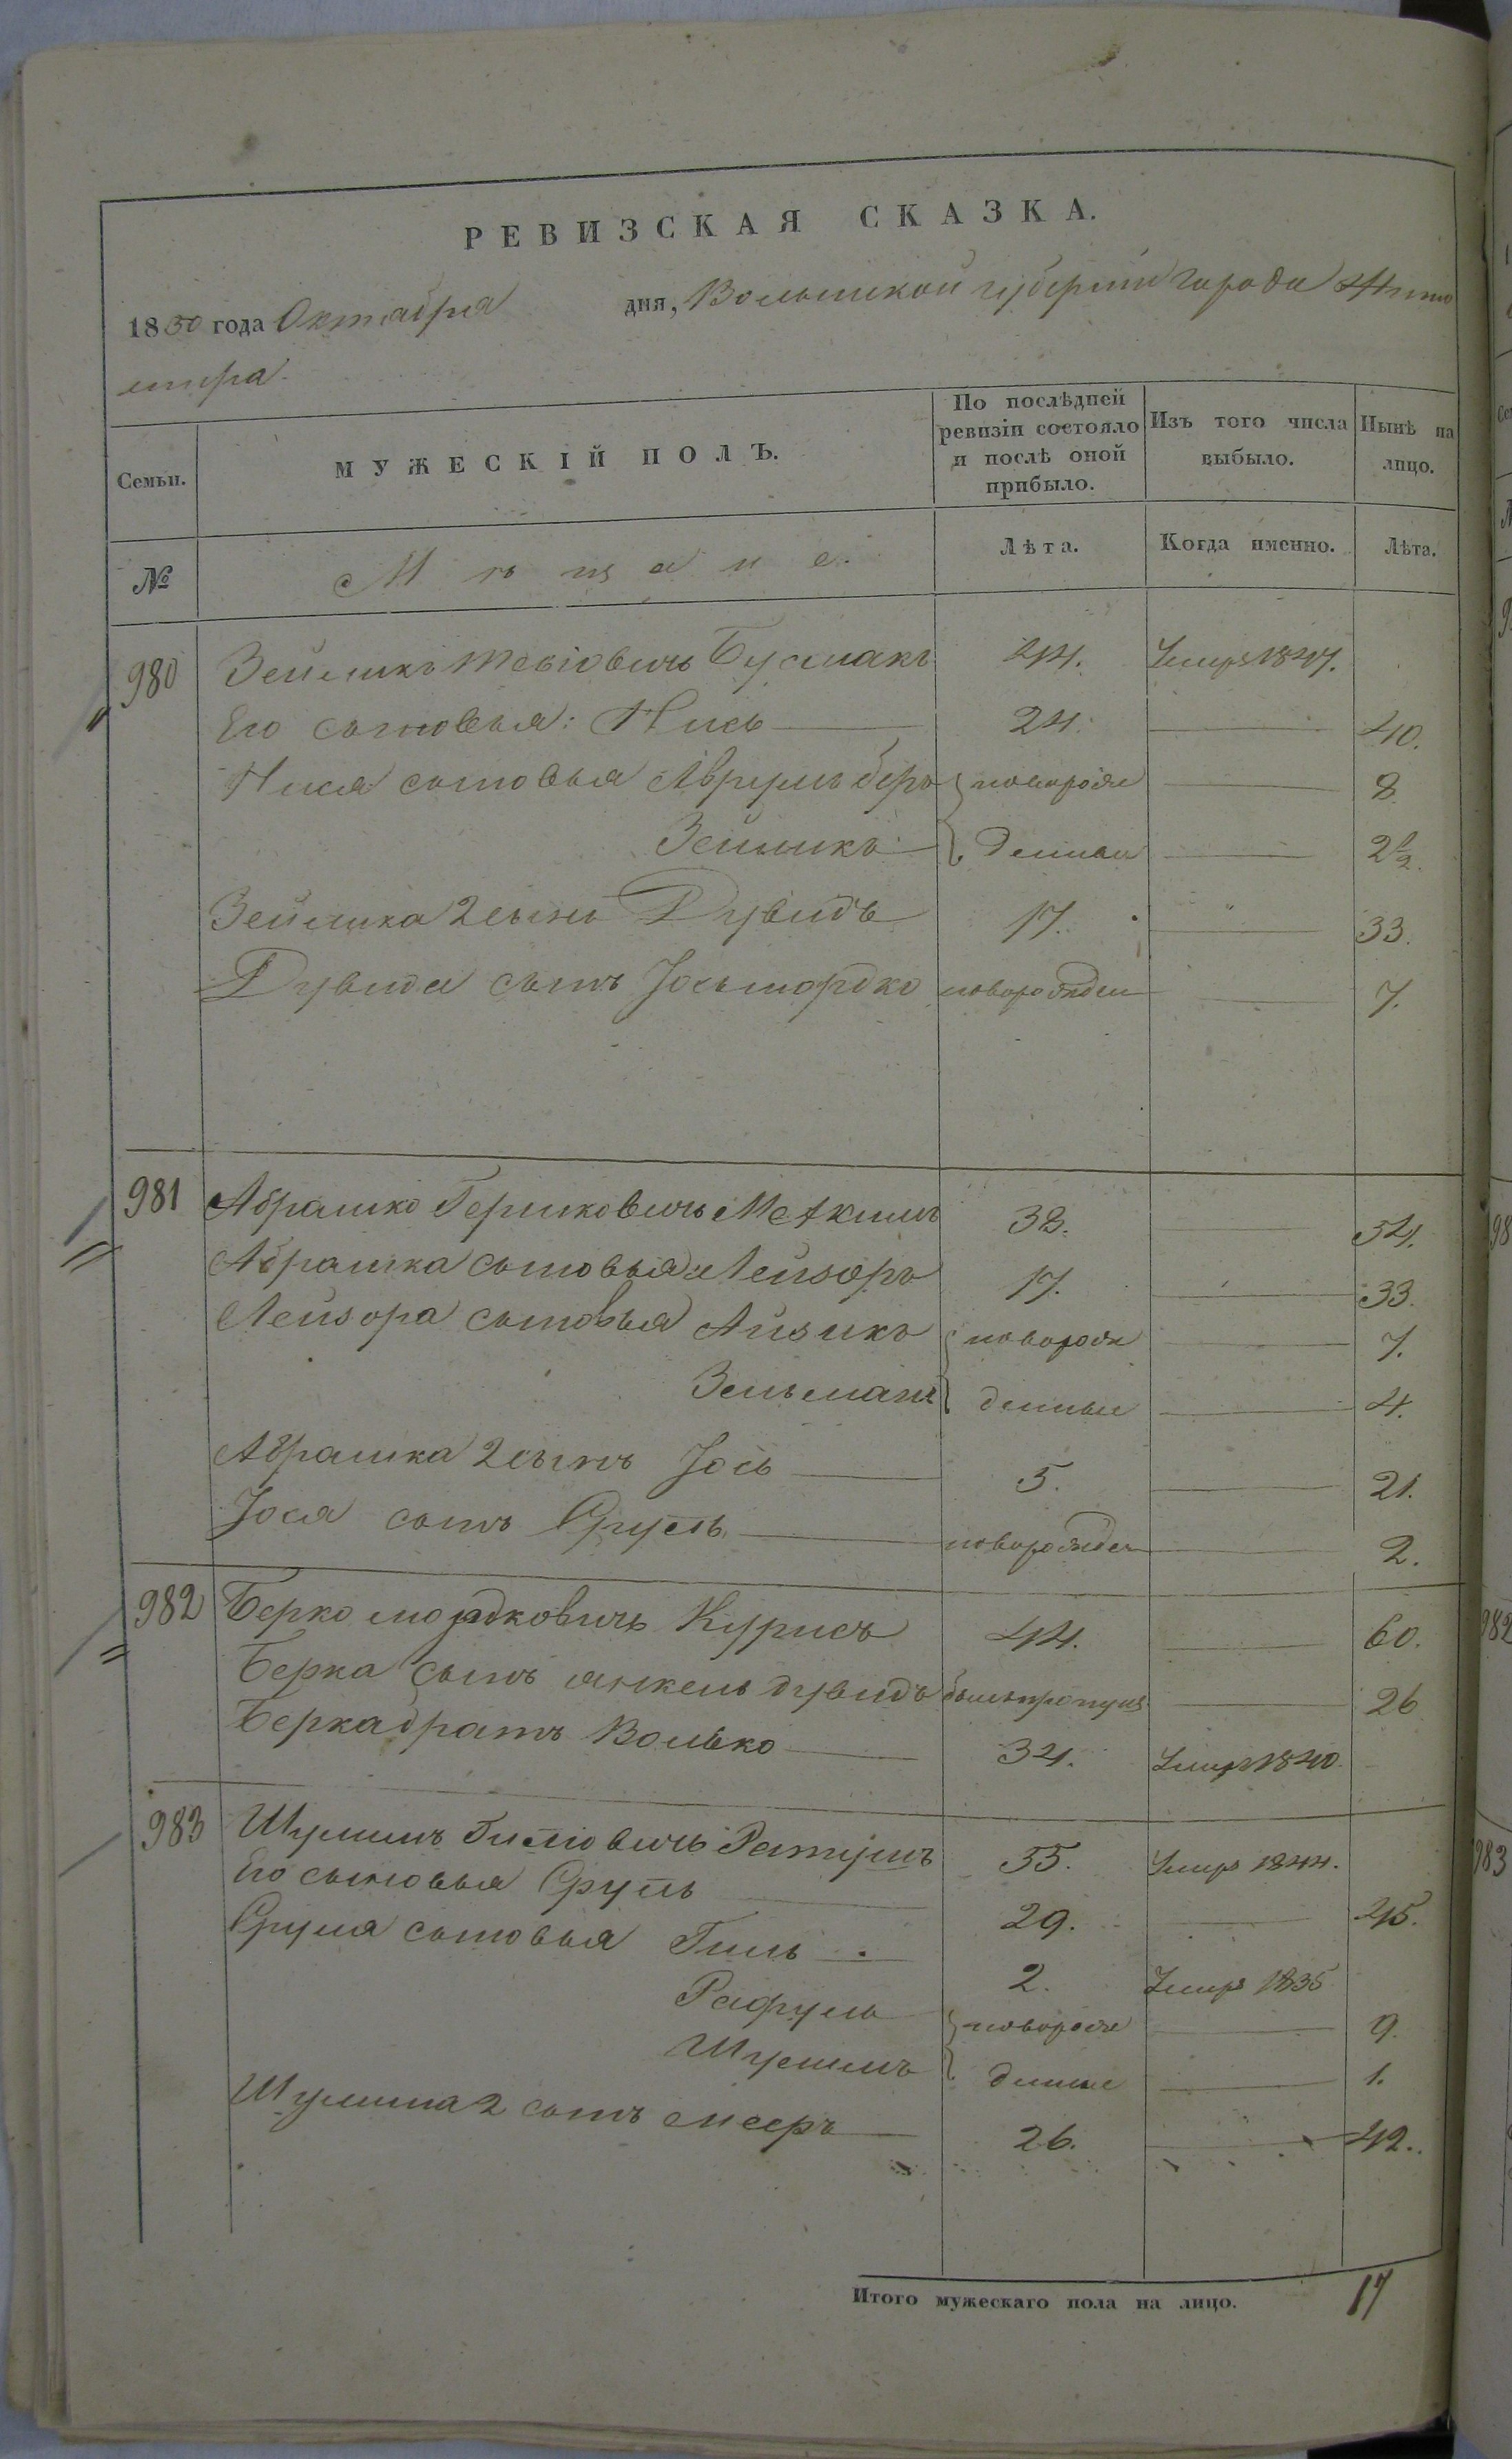 РЕВИЗСКАЯ СКАЗКА.
1850 года Октября дня, Волынской губернии города Жито
мира.
Семьи. МУЖЕСКІЙ ПОЛЪ. По послѣдней ревизіи состояло и послѣ оной прибыло. Изъ того числа выбыло. Нынѣ на лицо.
№ Мѣщане. Лѣта. Когда именно. Лѣта.
980 Зейликъ Тевіовичъ 44. Умеръ 1847.
Его сыновья: Нись 24. 40.
Нися сыновья Аврумъ беръ новорож 8.
Зейликъ денные 2 1/2.
Зейлика 2 сынъ Дувидъ 17. " 33.
Дувида сынъ Іосьмордко новорожден 7.
981 Абрашко Гершковичъ 38. 54.
Абрашка сыновья Лейзоръ 17. 33.
Лейзора сыновья Айзикъ новорож 7.
Зельманъ денные 4.
Абрашка 2 сынъ Іось 5. 21.
Іося сынъ Сруль новорожден 2.
982 Берко мордковичъ Курисъ 44. 60.
Берка сынъ янкель дувидъ былъ пропущ 26
Берка братъ Волько 34. Умеръ 1840.
983 Шулимъ Гилювичъ 55. Умеръ 1844.
Его сыновья Сруль 29. 45.
Сруля сыновья Гиль 2. Умеръ 1835
Рафуль новорож 9.
Шулимъ денные 1.
Шулима 2 сынъ мееръ 26. 42.
Итого мужескаго пола на лицо. 17